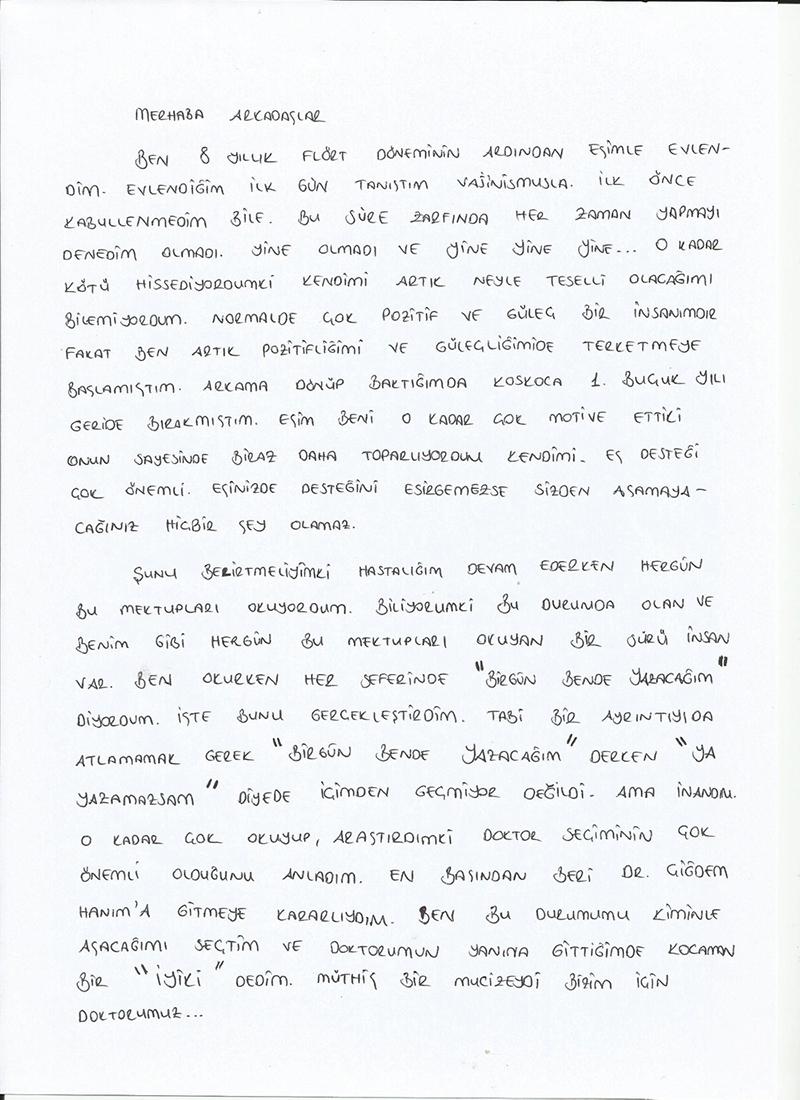 MERHABA ARKADAŞLAR
BEN 8 YILLIK FLÖRT DÖNEMİNİN ARDINDAN EŞİMLE EVLEN-
DİM. EVLENDİĞİM İLK GÜN TANIŞTIM VAJİNİSMUSLA. İLK ÖNCE
KABULLENMEDİM BİLE. BU SÜRE ZARFINDA HER ZAMAN YAPMAYI
DENEDİM OLMADI. YİNE OLMADI VE YİNE YİNE YİNE... O KADAR
KÖTÜ HİSSEDİYORDUMKİ KENDİMİ ARTIK NEYLE TESELLİ OLACAĞIMI
BİLEMİYORDUM. NORMALDE ÇOK POZİTİF VE GÜLEÇ BİR İNSANIMDIR
FAKAT BEN ARTIK POZİTİFLİĞİMİ VE GÜLEÇLİĞİMİDE TERKETMEYE
BAŞLAMIŞTIM. ARKAMA DÖNÜP BAKTIĞIMDA KOSKOCA 1. BUÇUK YILI
GERİDE BIRAKMIŞTIM. EŞİM BENİ O KADAR ÇOK MOTİVE ETTİKİ
ONUN SAYESİNDE BİRAZ DAHA TOPARLIYORDUM KENDİMİ. EŞ DESTEĞİ
ÇOK ÖNEMLİ. EŞİNİZDE DESTEĞİNİ ESİRGEMEZSE SİZDEN AŞAMAYA-
CAĞINIZ HİÇBİR ŞEY OLAMAZ.
ŞUNU BELİRTMELİYİMKİ HASTALIĞIM DEVAM EDERKEN HERGÜN
BU MEKTUPLARI OKUYORDUM. BİLİYORUMKİ BU DURUMDA OLAN VE
BENİM GİBİ HERGÜN BU MEKTUPLARI OKUYAN BİR SÜRÜ İNSAN
VAR. BEN OKURKEN HER SEFERİNDE "BİRGÜN BENDE YAZACAĞIM"
DİYORDUM. İŞTE BUNU GERÇEKLEŞTİRDİM. TABİ BİR AYRINTIYIDA
ATLAMAMAK GEREK "BİRGÜN BENDE YAZACAĞIM" DERKEN "YA
YAZAMAZSAM" DİYEDE İÇİMDEN GEÇMİYOR DEĞİLDİ. AMA İNANDIM.
O KADAR ÇOK OKUYUP, ARAŞTIRDIMKİ DOKTOR SEÇİMİNİN ÇOK
ÖNEMLİ OLDUĞUNU ANLADIM. EN BAŞINDAN BERİ DR. ÇİĞDEM
HANIM'A GİTMEYE KARARLIYDIM. BEN BU DURUMUMU KİMİNLE
AŞACAĞIMI SEÇTİM VE DOKTORUMUN YANINA GİTTİĞİMDE KOCAMAN
BİR "İYİKİ" DEDİM. MÜTHİŞ BİR MUCİZEYDİ BİZİM İÇİN
DOKTORUMUZ...